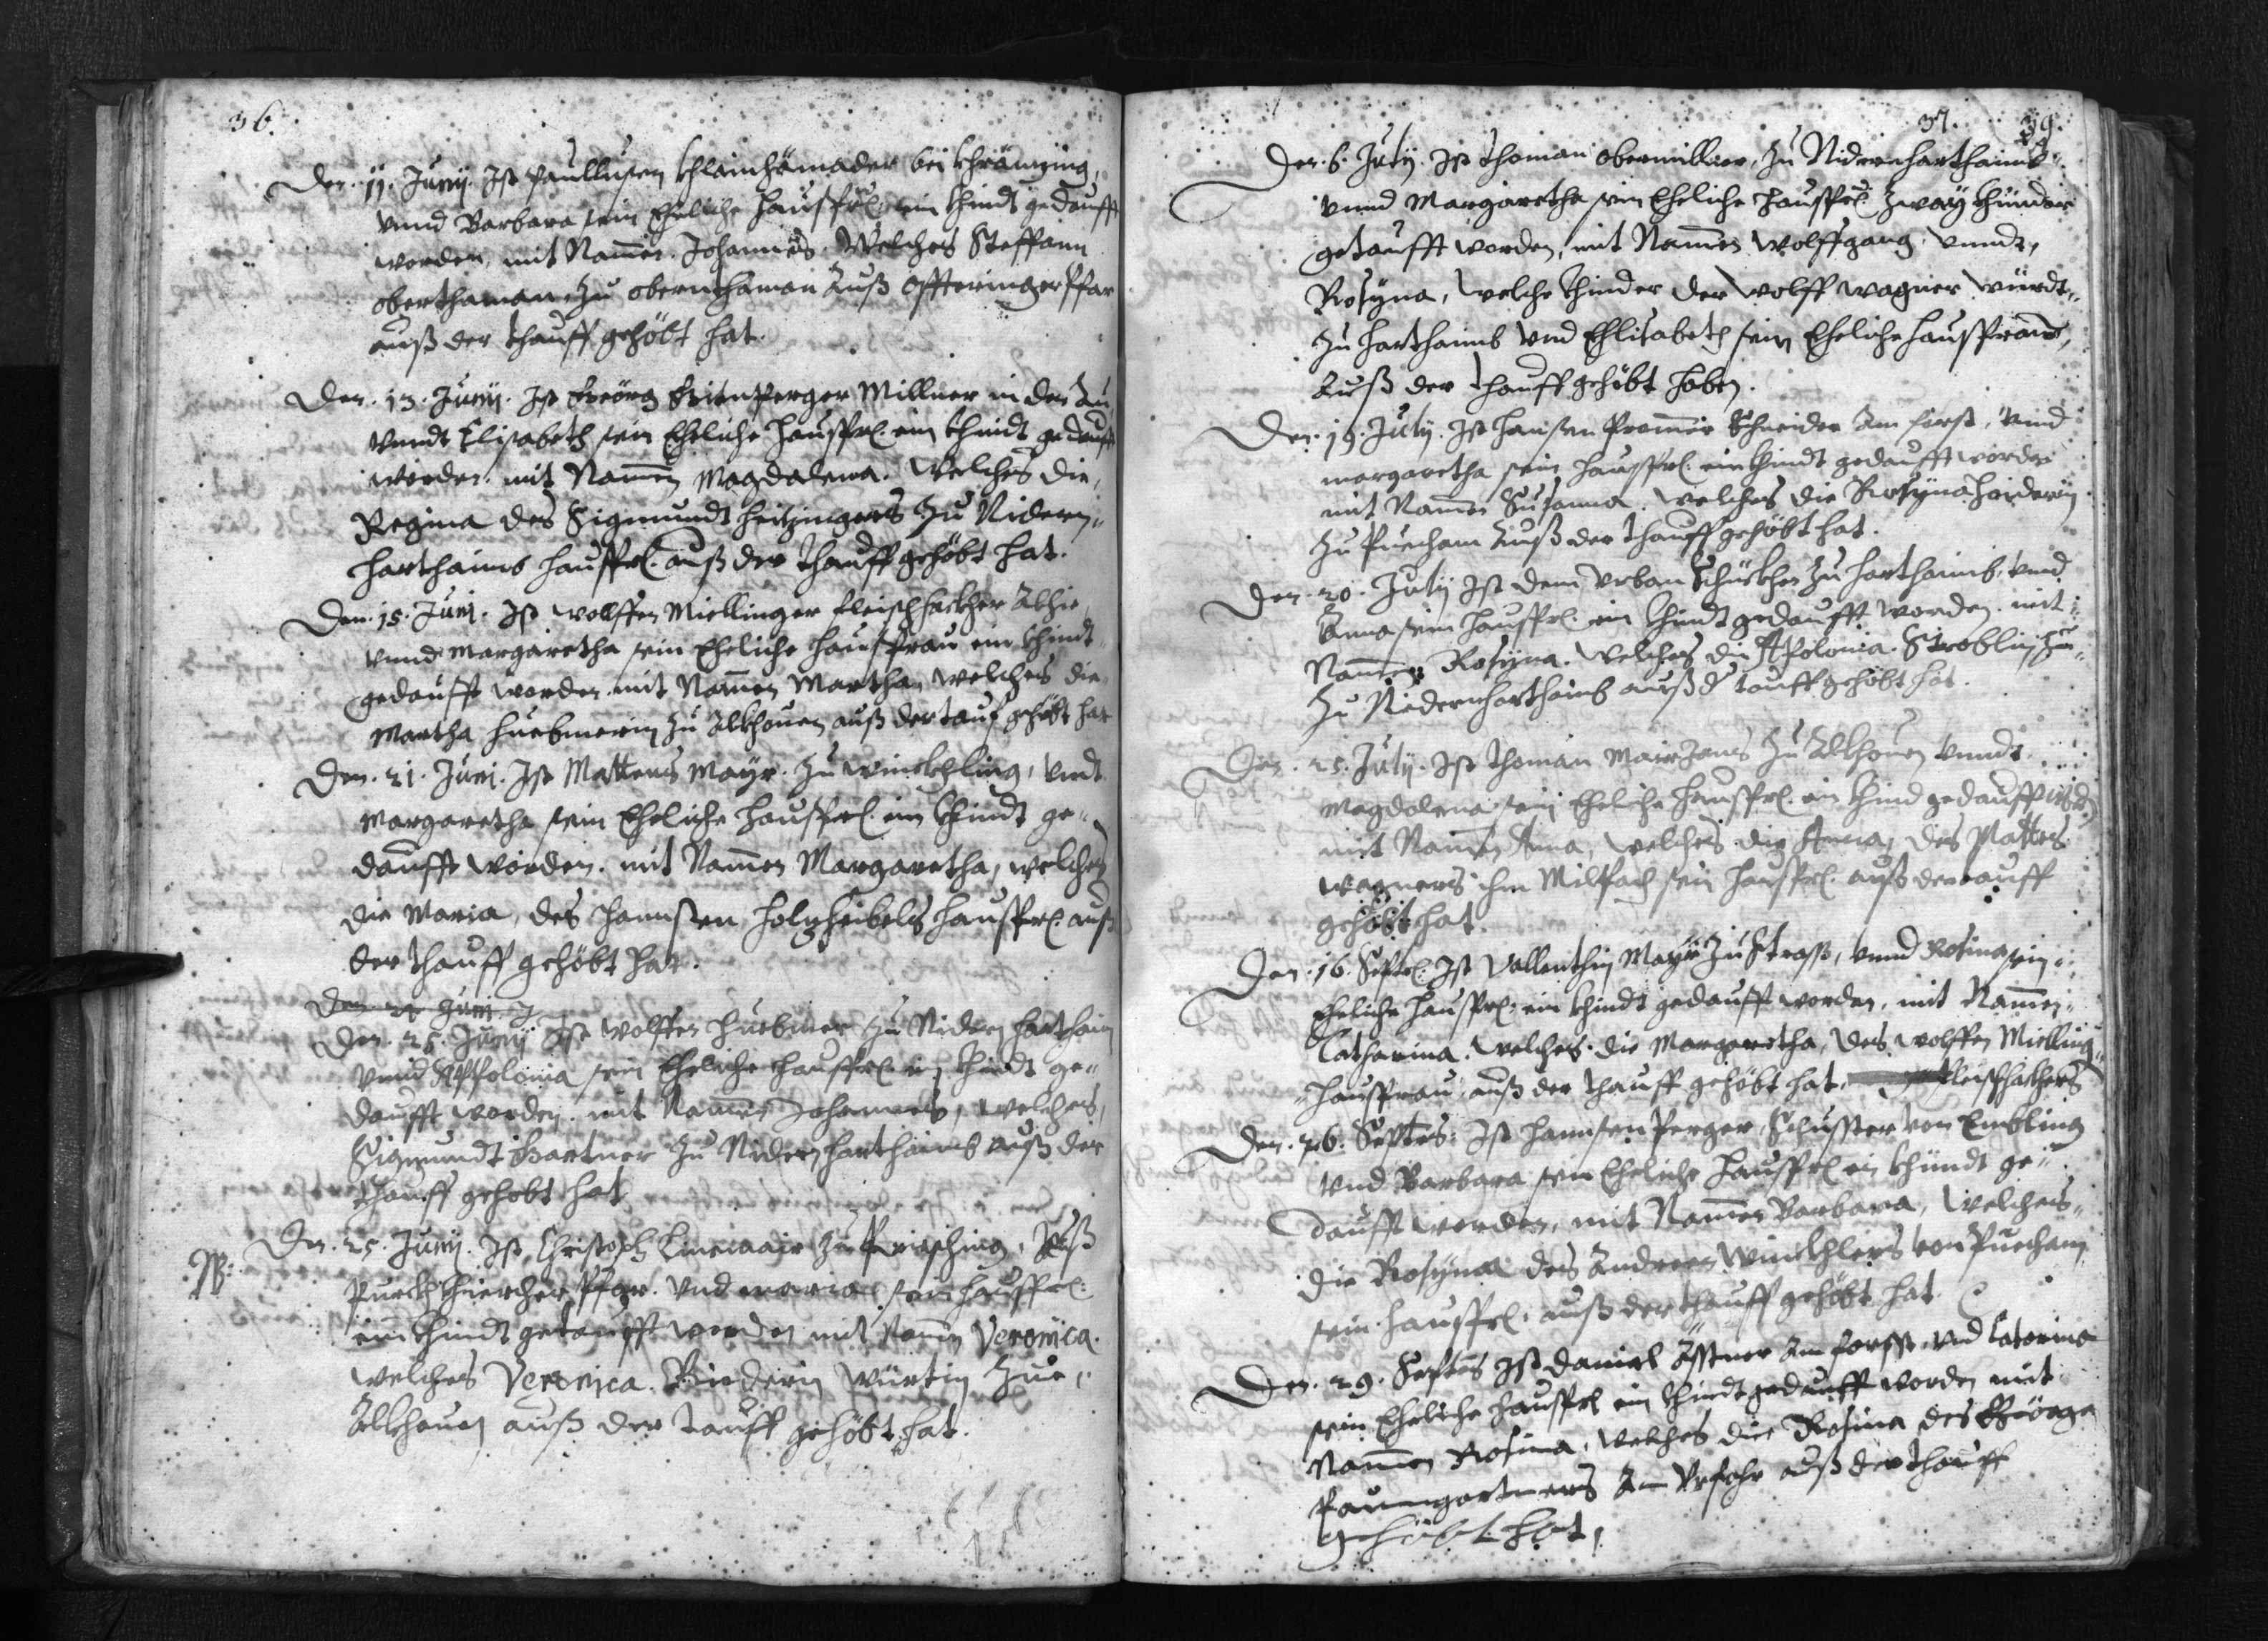 36.
Den. 11. Junij. Ist Paullusen Khlainhämader bei Khräming,
vnnd Barbara sein Eheliche hausfr: ein Khindt gedaufft
worden, mit Namen Johannes. Welches Steffann
oberthaman, zu obernthaman Auß Offteringer Pfar
auß der thauff gehöbt hat.
Den. 13. Junij. Ist Geörg Millner in der Au
vnndt Elisabeth sein Eheliche Hausfr: ein Khindt gedaufft
worden. mit Namen Magdalena. Welches die,
Regina des Sigmundt Heitzingers zu Nidern,,
harthaims hausfr: auß der thauff gehöbt hat.
Den. 15. Junj. Ist Wolffen Miellinger fleischhackher Alhie
vnnd Margaretha sein Eheliche Hausfrau ein Khindt
gedaufft worden. mit Namen Martha, welches die
Martha Huebmerin zu Alkhouen auß der tauf gehöbt hat
Den. 21. Junj. Ist Mattheus Mayr. zu Winckhling, vndt
Margaretha sein Eheliche Hausfr: ein Khindt ge,,
daufft worden. mit Namen Margaretha, welches
die Maria, des Hannsen Holzheibels Hausfr: auß
der thauff gehöbt hat.
Den 25 Junj. J
Den. 25. Junij Ist Wolffen Huebmer zu Nidern harthaim
vnnd Appolonia sein Eheliche Hausfr: ein Khindt ge,,
daufft worden. mit Namen Johannes, welches,
Sigmundt Gartner zu Nidern harthaimb auß der
thauff gehobt hat
NB: Den. 25. Junij. Ist Christoph Linemair zu, Auß
Puechkhiercher Pfar. vnd maria sein hausfr:
ein Khindt getaufft worden mit Namen Veronica.
welches Veronica. Binderin Würtin zue,,
Alkhouen auß der Tauff gehöbt hat.
37. 39.
Den. 6. July. Ist thoman obermillner, zu Nidernharthaimb,,
vnnd Margaretha sein Eheliche Hausfr: Zway Khinder
getaufft worden, mit Namen Wolffgang, vnndt,
Rosyna, Welche Khinder der Wolff Wagner Würdt,,
zu harthaimb vnd Ehlisabeth sein Eheliche Hausfraw,
Auß der thauff gehöbt haben.
Den. 19. July. Ist Hansen Schneider Am forst, vnnd
margaretha sein Hausfr: ein Khindt gedaufft worden
mit Namen Susanna. welches die Rosyna Haiderin
zu Puecham Auß der thauff gehöbt hat.
Den. 20. July Ist dem Vrban zu harthaimb, vnd
Anna sein Hausfr: ein Khindt gedaufft worden. mit
Namen Rosyna. Welches die Apolonia. Stroblin, zue,,
zu Nidernharthaimb auß d' tauff gehöbt hat.
Den. 25. July. Ist thoman zu Alkhouen vnndt
Magdalena sein Eheliche Hausfr: ein Khind gedaufft word:
mit Namen Anna, welches die Anna, des Mattes
Wagners Im Milpach sein Hausfr: auß der tauff
gehöbt hat.
Den. 16. Septe: Ist Vallenthin Mayr zu Straß, vnnd Rosina sein
Eheliche Hausfr: ein Khindt gedaufft worden, mit Namen,,
Catharina. welches. die Margaretha, des Wolffen Mielling,,
Hausfrau, auß der thauff gehöbt hat. fleischhackhers
Den. 26. Septes: Ist Hannsen Perger, Schuster von Embling
vnd Barbara sein Eheliche Hausfr: ein Khindt ge,,
daufft worden, mit Namen Barbara, Welches,,
die Rosyna des Andreen Winckhlers von Puecham,
sein. hausfr: auß der thauff gehöbt hat
Den. 29. Septes Ist Daniel Am forst, vnd Catarina
sein Eheliche Hausfr: ein Khindt gedaufft worden mit
Namen Rosina, welches die Rosina des Geörgn
Paumgartners Am Vrfahr auß der thauff
gehöbt hat,